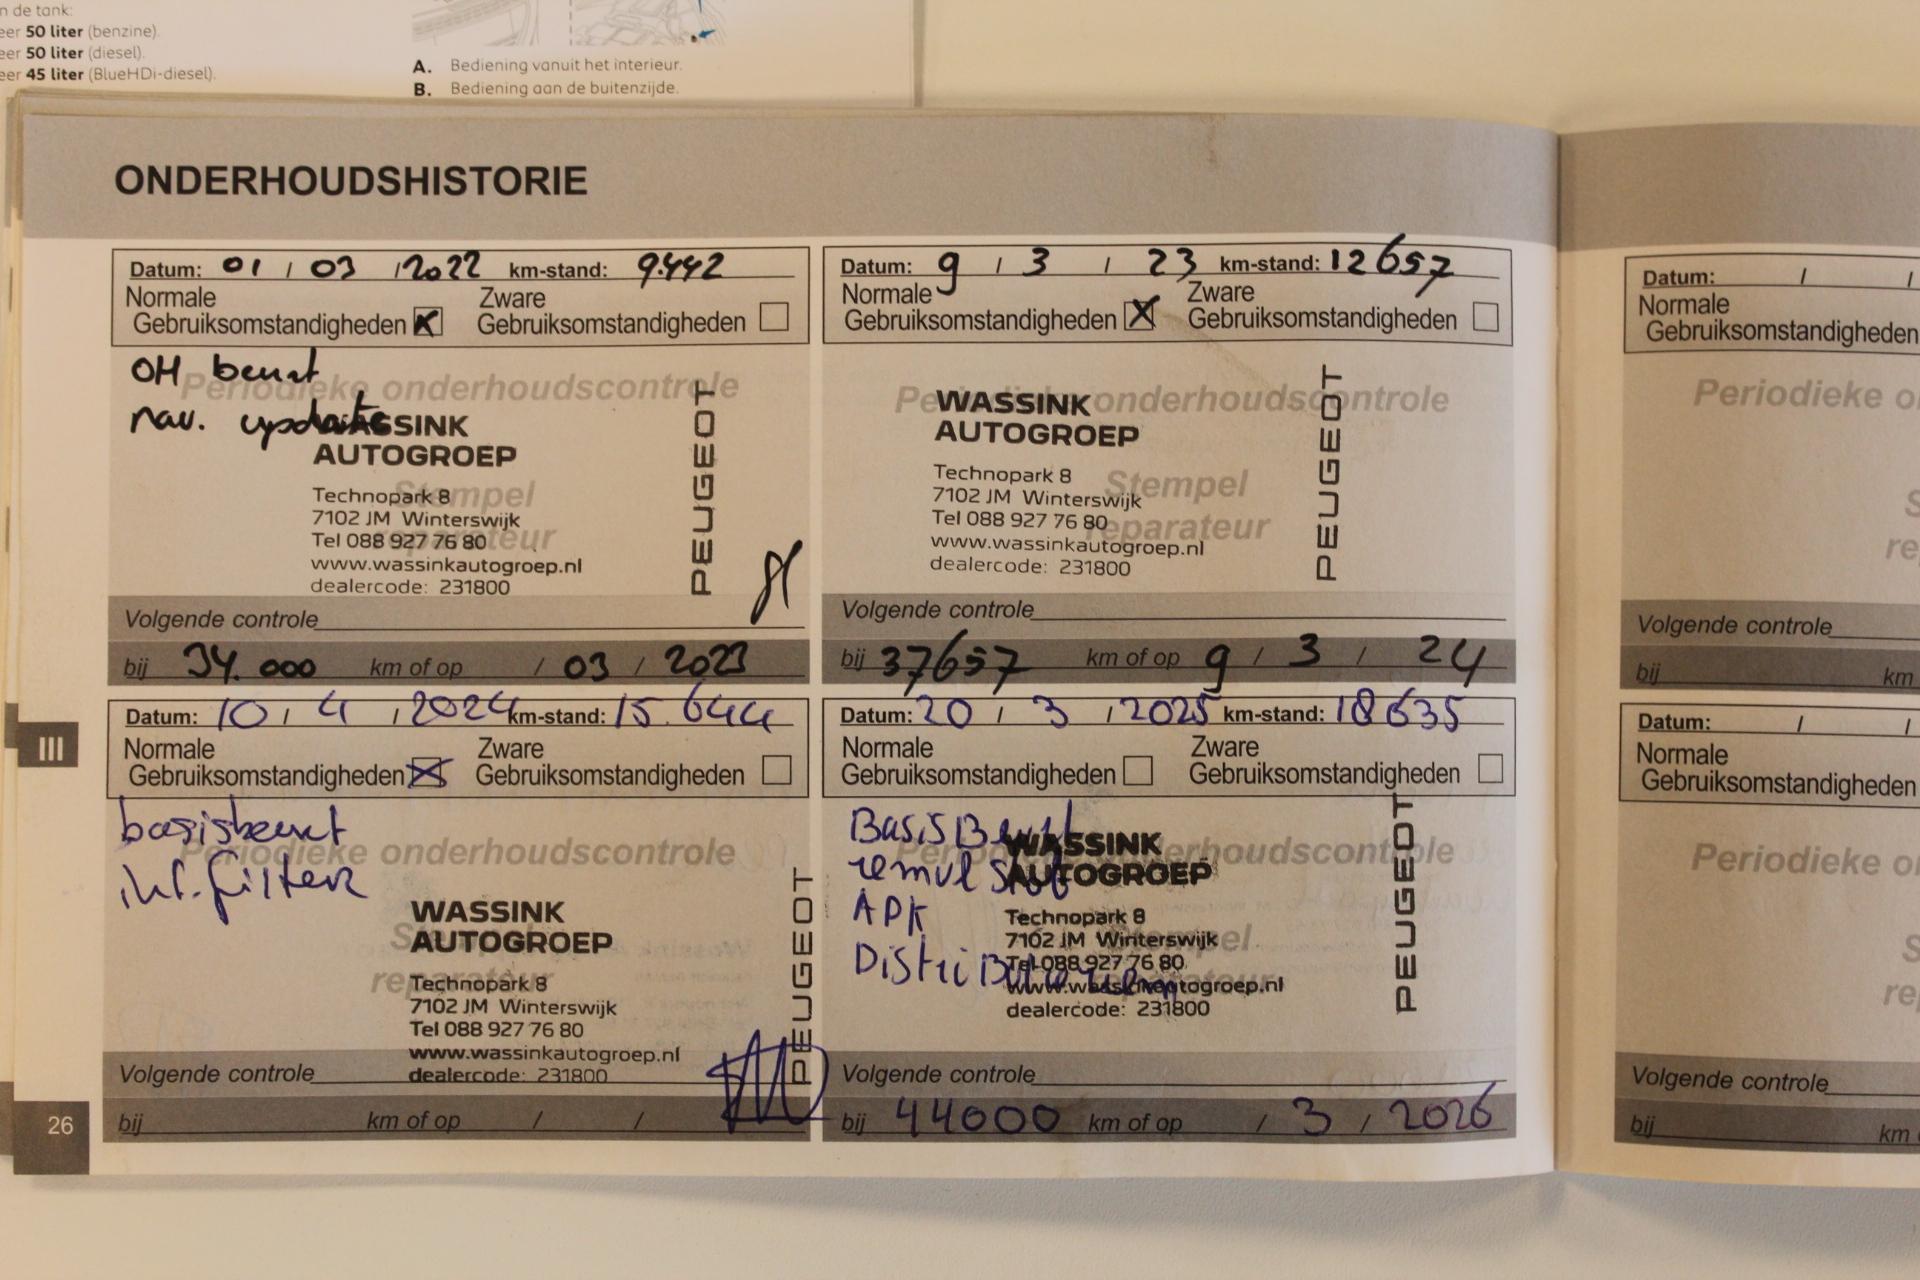 n de tank:
eer 50 liter (benzine).
eer 50 liter (diesel).
eer 45 liter (BlueHDi-diesel).
A. Bediening vanuit het interieur.
B. Bediening aan de buitenzijde.
ONDERHOUDSHISTORIE
Datum: 01 / 03 / 2022 km-stand: 9.442
Normale
Gebruiksomstandigheden
Zware
Gebruiksomstandigheden
OH beurt
nav. update
Periodieke onderhoudscontrole
WASSINK
AUTOGROEP
Stempel
reparateur
Technopark 8
7102 JM Winterswijk
Tel 088 927 76 80
www.wassinkautogroep.nl
dealercode: 231800
PEUGEOT
Volgende controle
bij 34.000 km of op / 03 / 2023
Datum: 9 / 3 / 23 km-stand: 12657
Normale
Gebruiksomstandigheden
Zware
Gebruiksomstandigheden
Periodieke onderhoudscontrole
WASSINK
AUTOGROEP
Stempel
reparateur
Technopark 8
7102 JM Winterswijk
Tel 088 927 76 80
www.wassinkautogroep.nl
dealercode: 231800
PEUGEOT
Volgende controle
bij 37657 km of op 9 / 3 / 24
Datum: 10 / 4 / 2024 km-stand: 15.644
Normale
Gebruiksomstandigheden
Zware
Gebruiksomstandigheden
basisbeurt
int.filter
Periodieke onderhoudscontrole
WASSINK
AUTOGROEP
Stempel
reparateur
Technopark 8
7102 JM Winterswijk
Tel 088 927 76 80
www.wassinkautogroep.nl
dealercode: 231800
PEUGEOT
Volgende controle
bij km of op / /
Datum: 20 / 3 / 2025 km-stand: 18635
Normale
Gebruiksomstandigheden
Zware
Gebruiksomstandigheden
Basis Beurt
remvl stof
APK
Periodieke onderhoudscontrole
WASSINK
AUTOGROEP
Stempel
reparateur
Technopark 8
7102 JM Winterswijk
Tel 088 927 76 80
www.wassinkautogroep.nl
dealercode: 231800
PEUGEOT
Volgende controle
bij 44000 km of op / 3 / 2026
III
26
Datum: / /
Normale
Gebruiksomstandigheden
Periodieke o
S
re
Volgende controle
bij km
Datum: / /
Normale
Gebruiksomstandigheden
Periodieke o
S
re
Volgende controle
bij km